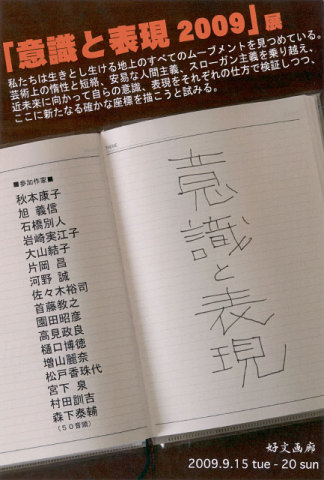 「意識と表現 2009」展
私たちは生きとし生ける地上のすべてのムーブメントを見つめている。
芸術上の惰性と短絡、安易な人間主義、スローガン主義を乗り越え、
近未来に向かって自らの意識、表現をそれぞれの仕方で検証しつつ、
ここに新たなる確かな座標を描こうと試みる。
■参加作家■
秋本康子
旭 義信
石橋別人
岩崎実江子
大山結子
片岡 昌
河野 誠
佐々木裕司
首藤教之
園田昭彦
高見政良
樋口博徳
増山麗奈
松戸香珠代
宮下 泉
村田訓吉
森下泰輔
(50音順)
意識と表現
好文画廊
2009.9.15 tue - 20 sun